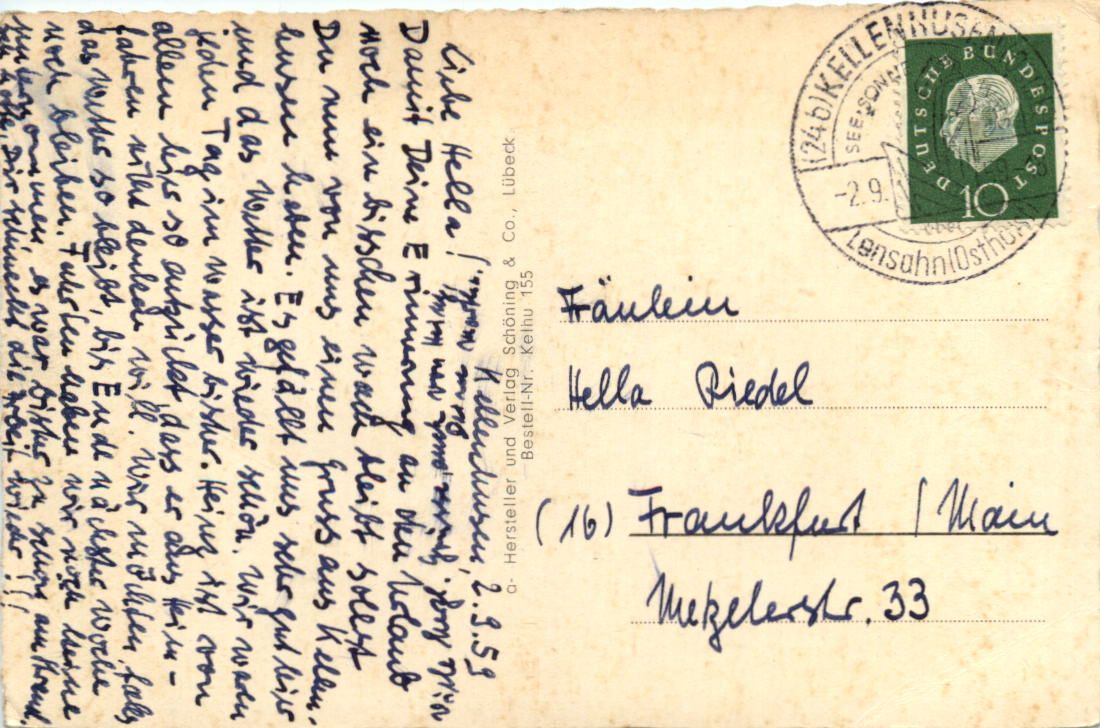 Kellenhusen, 2.9.59
Liebe Hella!
Damit Deine Erinnerung an den Urlaub
noch ein bisschen wach bleibt sollst
Du nun von uns einen Gruss aus Kellen-
husen haben. Es gefällt uns sehr gut hier
und das Wetter ist wieder schön. Wir waren
jeden Tag im Wasser bisher. Heinz ist von
allem hier so entzückt dass er ans Heim-
fahren nicht denken will. Wir möchten, falls
das Wetter so bleibt, bis Ende nächster Woche
noch bleiben. Fotos haben wir noch keine
es war bisher zu schön am Strand
a- Hersteller und Verlag Schöning & Co., Lübeck
Bestell-Nr. Kelhu 155
(24b) KELLENHUSEN
SEE·SONNE
-2.9.
Lensahn (Osthol
DEUTSCHE BUNDESPOST
10
Fräulein
Hella Riedel
(16) Frankfurt / Main
Metzelerstr. 33